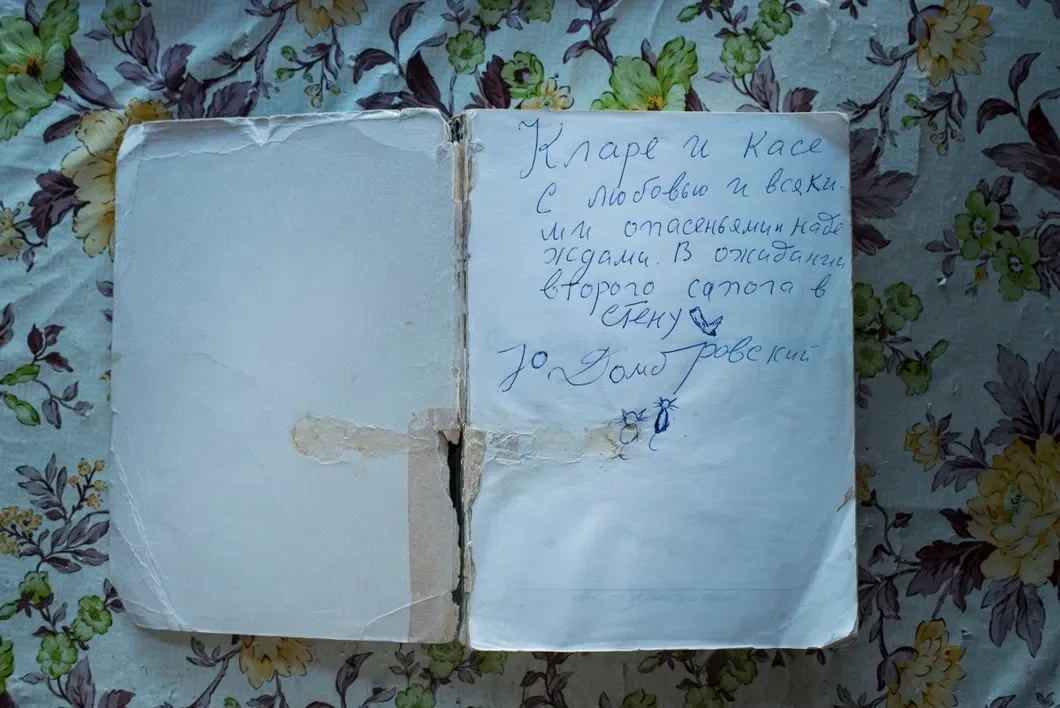 Кларе и Касе
с любовью и всяки-
ми опасеньями и наде
ждами. В ожидании
второго сапога в
стену
Ю. Домбровский